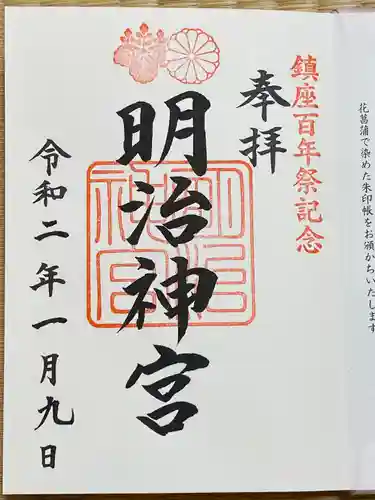 花菖蒲で染めた朱印帳をお頒かちいたします
鎮座百年祭記念
奉拝
明治神宮
令和二年一月九日